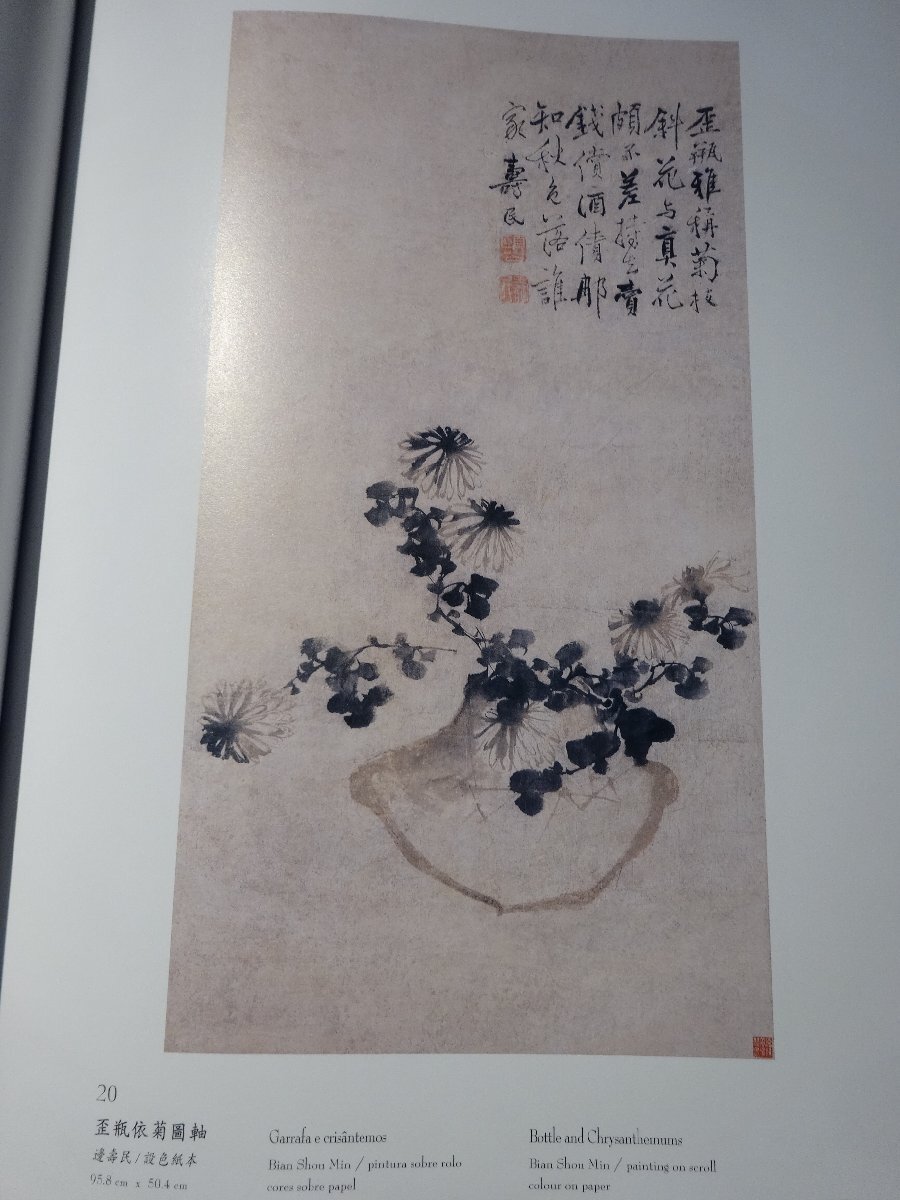 歪瓶雅稱菊枝
斜花与真花
頗不差持去賣
錢償酒債那
知秋色落誰
家 壽民
20
歪瓶依菊圖軸
邊壽民/設色紙本
95.8 cm x 50.4 cm
Garrafa e crisântemos
Bian Shou Min / pintura sobre rolo
cores sobre papel
Bottle and Chrysanthemums
Bian Shou Min / painting on scroll
colour on paper